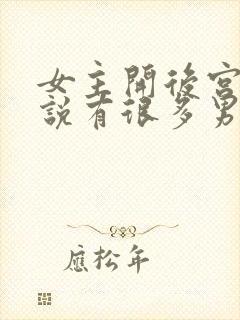 女主開後宮
說有很多男
應松年